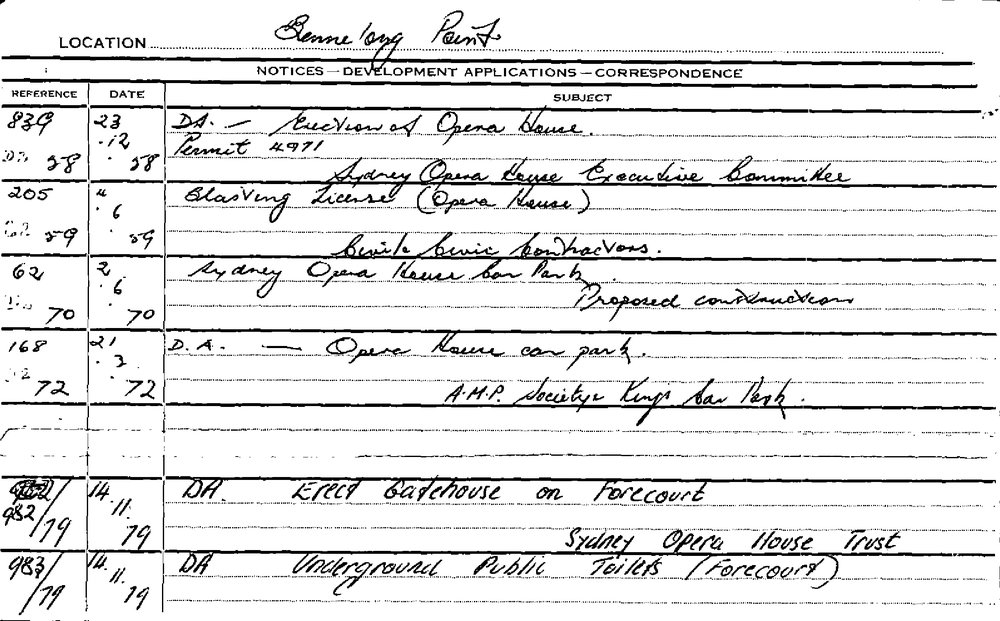 LOCATION Bennelong Point
NOTICES — DEVELOPMENT APPLICATIONS — CORRESPONDENCE
REFERENCE DATE SUBJECT
839 23 DA. — Erection of Opera House.
.12 Permit 4971
58 . 58 Sydney Opera House Executive Committee
205 4 Blasting License (Opera House)
. 6
59 . 59 Civil & Civic Contractors.
62 2 Sydney Opera House Car Park
. 6 Proposed construction
70 . 70
168 21 D.A. — Opera House car park.
. 3
72 . 72 A.M.P. Society & Kings Car Park.
982/79 14.11.79 DA. Erect Gatehouse on Forecourt
Sydney Opera House Trust
983/79 14.11.79 DA Underground Public Toilets (Forecourt)